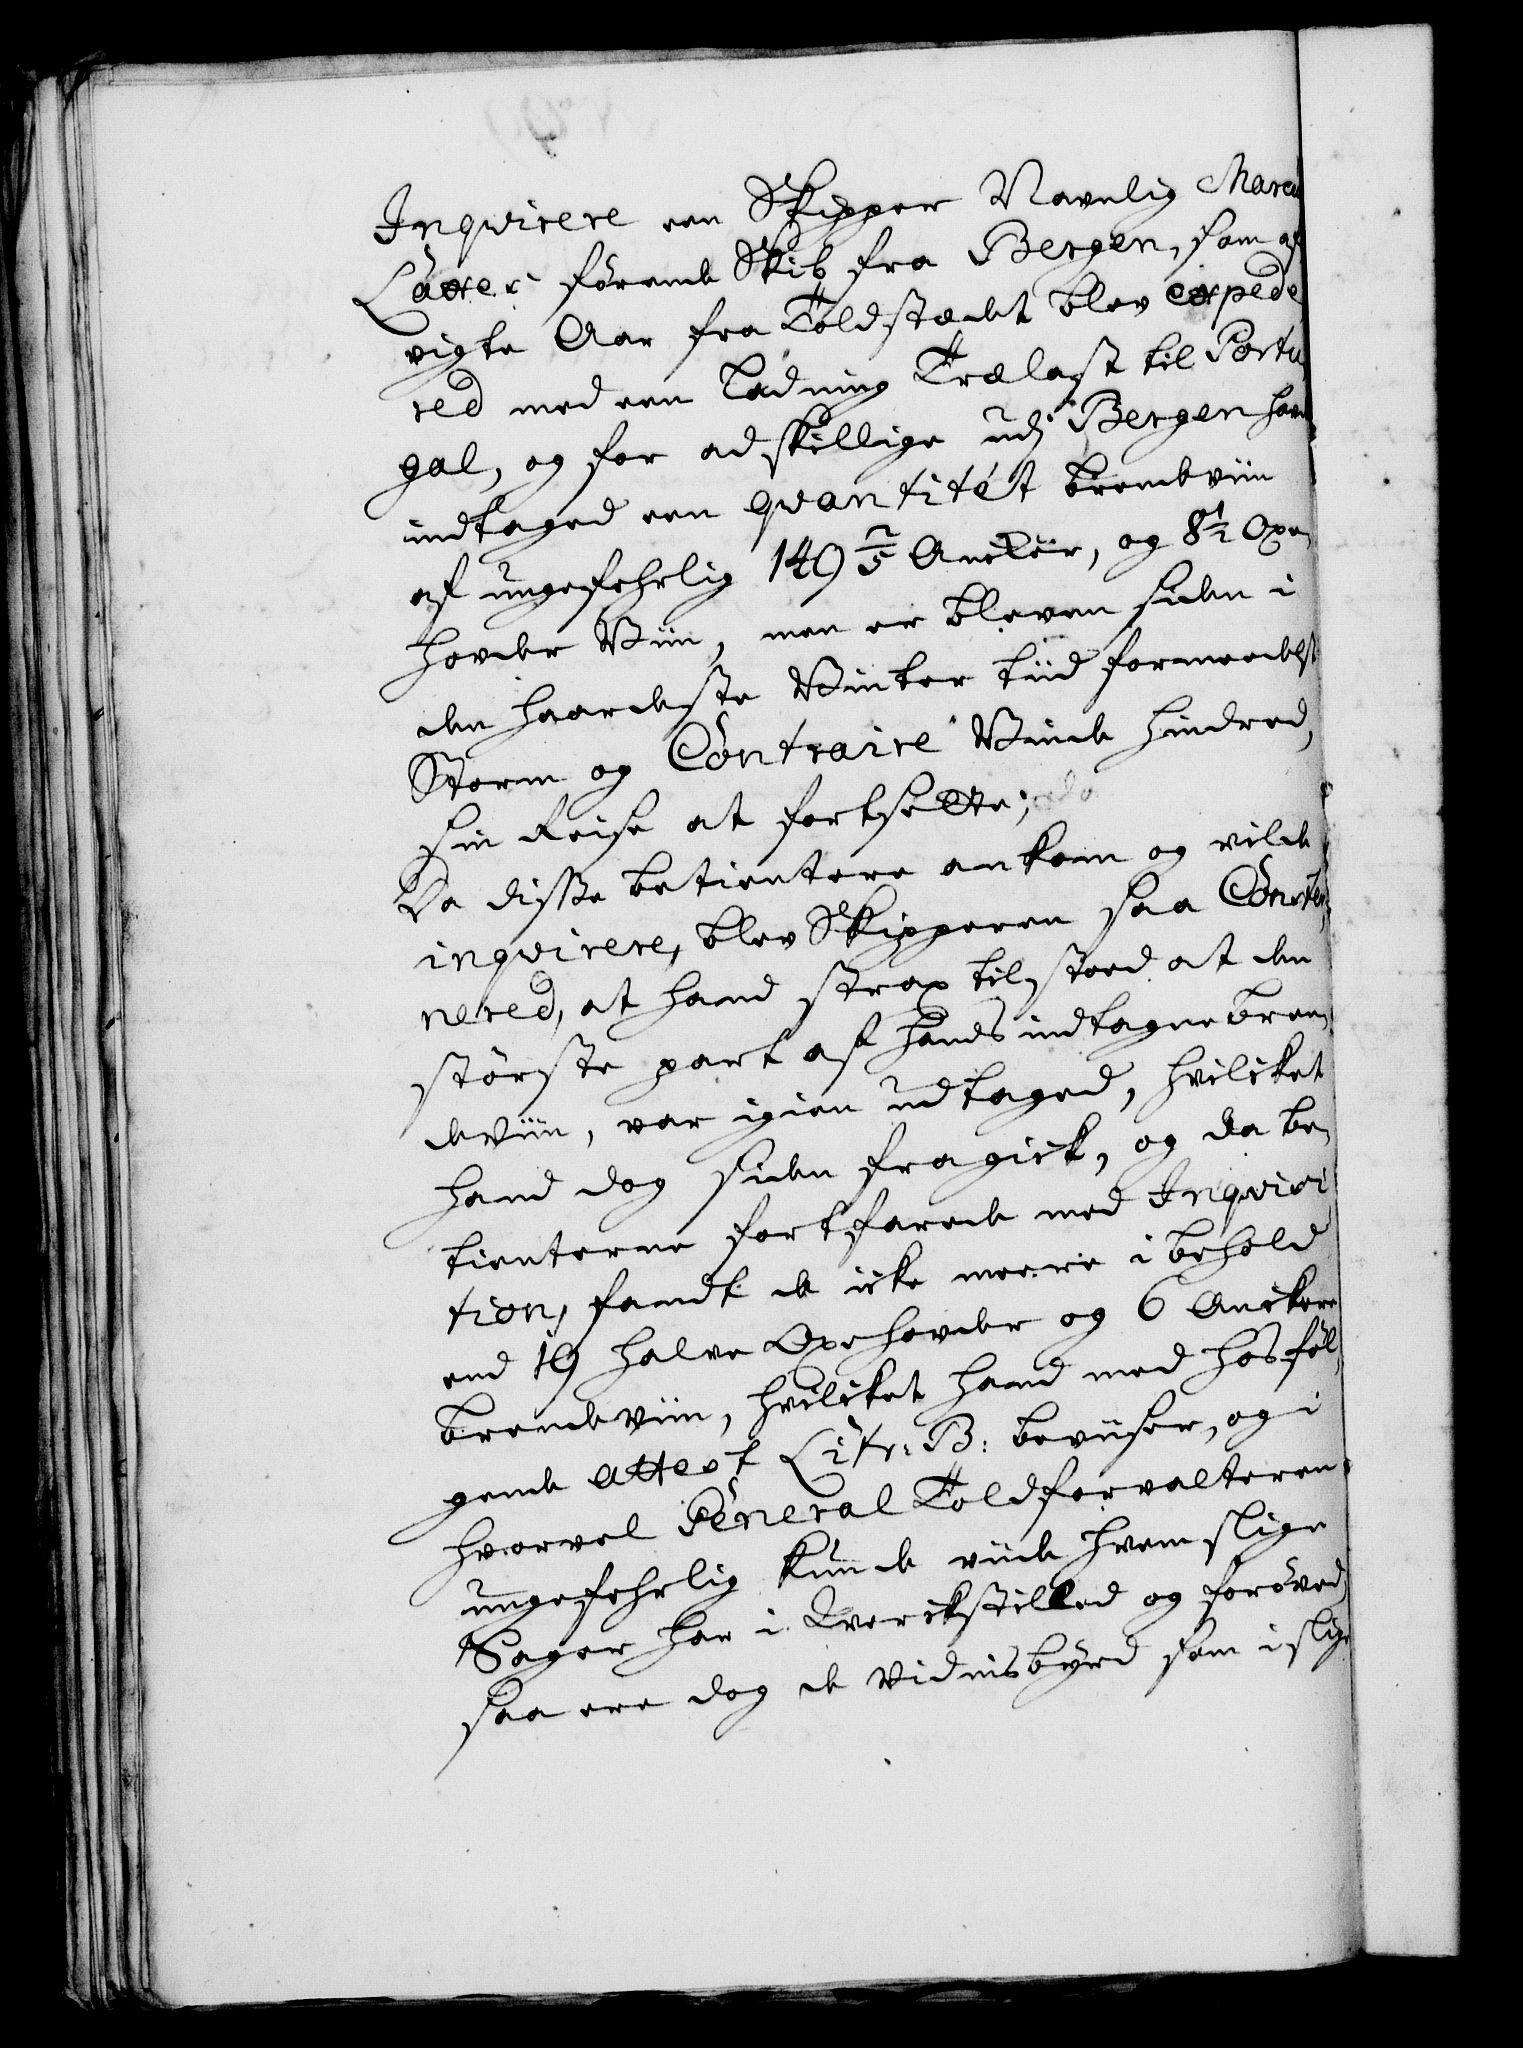 Inqvirere een Skipper Navnlig Marcu
Låtter förende Skib fra Bergen, som af
vigte Aar fra Toldstædet blev expede
red med een Ladning Trælast til Portu,
gal, og for adskillige udj Bergen hav
indtaged een qvantitét brendviin
af ungefehrlig 149 2/5 Ancker, og 8 1/2 Oxe,
hovder Viin, men er bleven siden i
den haardeste Vinter tiid formedelst
Storm og Contraire Vinde hindred,
sin Reise at fortsette;
Da disse betientere ankom og vilde
inqvirere, blev Skipperen saa Conster,
nered, at hand strax tilstoed at den
störste part af hands indtagne bren,
deviin, var igien udtaged, hvilcket
hand dog siden fragick, og da be,
tienterne fortfarede med Inqvisi
tion, fandt de icke meere i behold
end 19 halve Oxehovder og 6 Anckere
brendeviin, hvilcket hand med hosföl,
gende attest Litr: B: beviiser, og i
hvorvel General Toldforvalteren
ungefehrlig kunde viide hvem slige
Sager har i Verckstilled og foröved,
saa ere dog de Vidnisbyrd som i slige